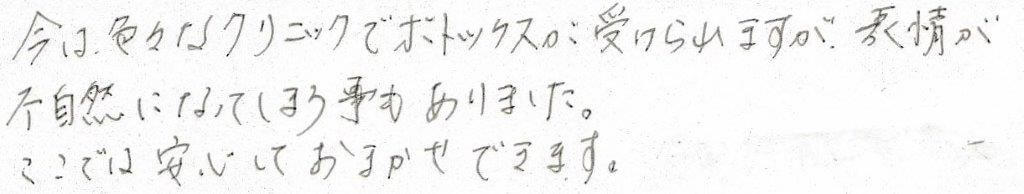 今は色々なクリニックでボトックスが受けられますが、表情が
不自然になってしまう事もありました。
ここでは安心しておまかせできます。